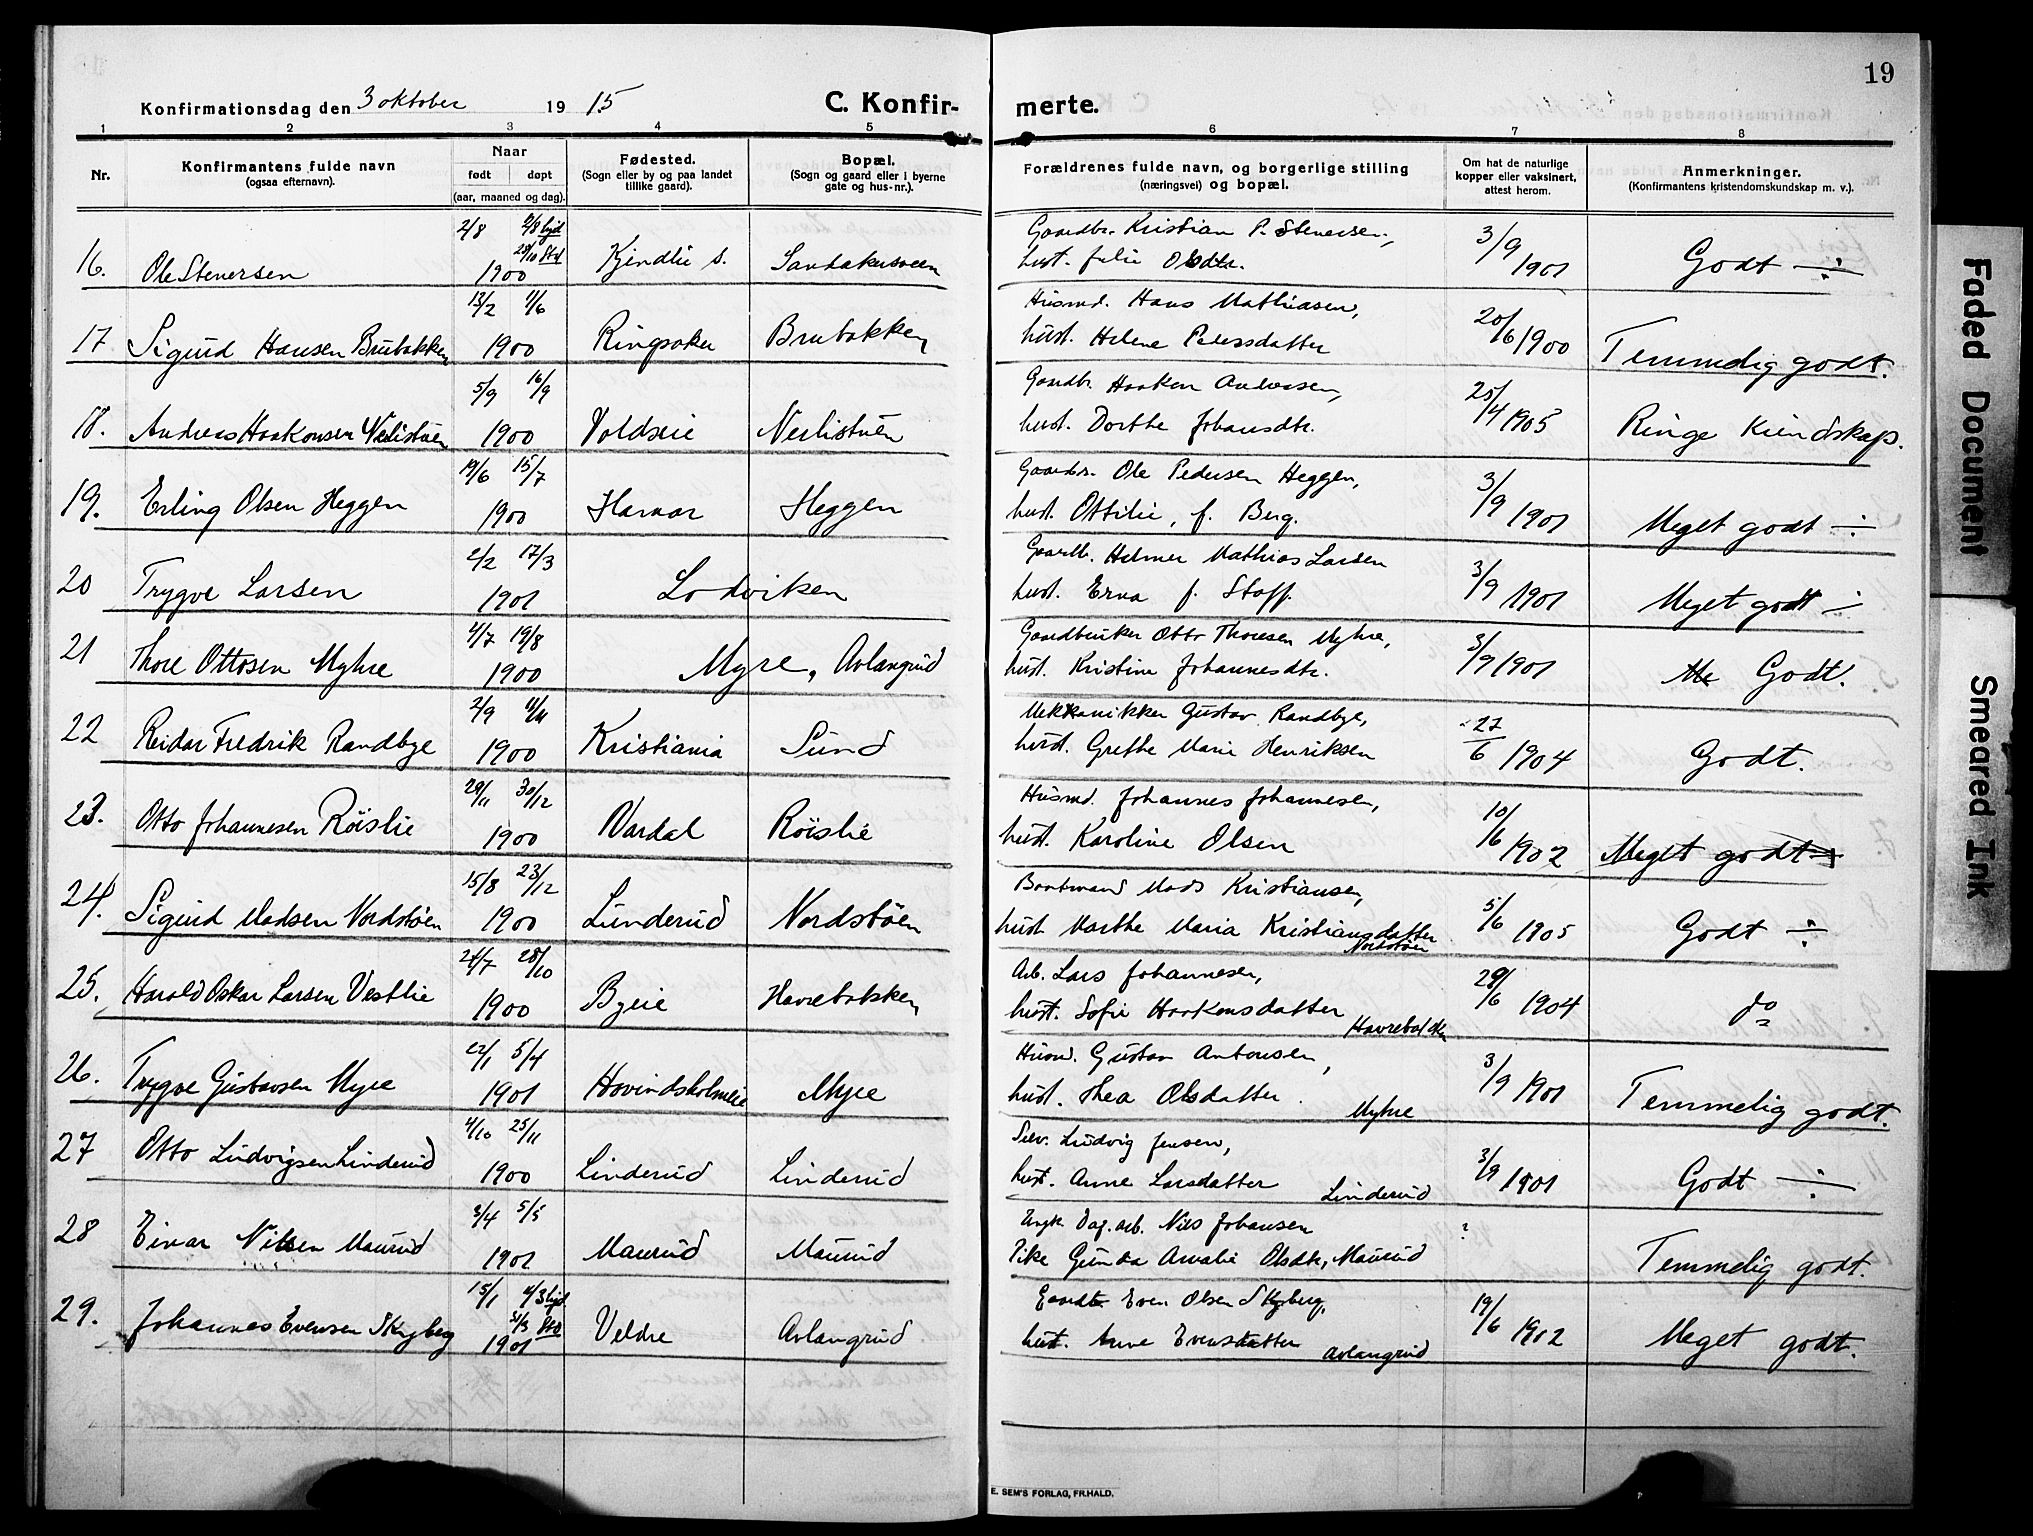 19
Konfirmationsdag den 3 oktober 1915 C. Konfir- merte.
1 2 3 4 5 6 7 8
Nr. Konfirmantens fulde navn (ogsaa efternavn). Naar født døpt (aar, maaned og dag). Fødested. (Sogn eller by og paa landet tillike gaard). Bopæl. (Sogn og gaard eller i byerne gate og hus-nr.). Forældrenes fulde navn, og borgerlige stilling (næringsvei) og bopæl. Om hat de naturlige kopper eller vaksinert, attest herom. Anmerkninger. (Konfirmantens kristendomskundskap m. v.).
2/8 2/8 hjd Gaardbr. Kristian P. Stenersen, 3/9
28/10 Std
16. Ole Stenersen 1900 Kjendlie s. hust. Julie Olsdtr. 1901 Godt ÷
13/2 4/6 Husmd. Hans Mathiasen, 20/6
17 Sigurd Hansen Brubakken 1900 Ringsaker Brubakken hust. Helene Pedersdatter 1900 Temmelig godt.
5/9 16/9 Gaardbr. Haakon Andreassen, 25/4
18. Andreas Haakonsen Nerlistuen 1900 Voldseie Nerlistuen hust. Dorthe Johansdtr. 1905 Ringe Kundskap.
19/6 15/7 Gaardbr. Ole Pedersen Heggen, 3/9
19. Erling Olsen Heggen 1900 Hamar Heggen hust. Ottilie, f. Berg. 1901 Meget godt ÷
2/2 17/3 Gaardb. Helmer Mathias Larsen 3/9
20 Trygve Larsen 1901 Lodviken hust. Erna f. Staff. 1901 Meget godt ÷
4/7 19/8 Gaardbruker Otto Thoresen Myhre, 3/9
21 Thore Ottosen Myhre 1900 Myre, Avlangrud hust. Kristine Johannesdtr. 1901 Godt.
2/9 4/11 Mekkanikker Gustav Randbye, 27/6
22 Reidar Fredrik Randbye 1900 Kristiania Sund hust. Grethe Marie Henriksen 1904 Godt.
29/11 30/12 Husmd. Johannes Johannesen, 10/6
23. Otto Johannesen Röislie 1900 Vardal Röislie hust. Karoline Olsen 1902 Meget godt
15/8 23/12 Bortmand Mads Kristiansen, 5/6
24. Sigurd Madsen Nordstöen 1900 Linderud Nordstöen hust. Marthe Maria Kristiansdatter Nordstöen 1905 Godt ÷
24/7 28/10 Arb. Lars Johannesen, 29/6
25. Harald Oskar Larsen Vestlie 1900 Byeie Havrebakken hust. Sofie Haakonsdatter Havrebakken 1904 do
22/1 5/4 Husmd. Gustav Antonsen, 3/9
26. Trygve Gustavsen Myre 1901 Hovindsholmeie Myre hust. Thea Olsdatter. Myhre 1901 Temmelig godt.
4/10 25/11 Selv. Ludvig Jensen, 3/9
27 Otto Ludvigsen Linderud 1900 Linderud Linderud hust. Anne Larsdatter Linderud 1901 Godt ÷
3/4 5/5 Ungk. Dag. arb. Nils Johansen ?
28 Einar Nilsen Maurud 1901 Maurud Maurud Pike Gunda Amalie Olsdtr, Maurud Temmelig godt.
15/1 4/3 hjd Gaardbr Even Olsen Skyberg, 19/6
31/3 Std
29. Johannes Evensen Skyberg 1901 Veldre Avlangrud hust. Anne Evensdatter Avlangrud 1902 Meget godt.
E. SEM'S FORLAG, FR.HALD.
Faded Document
Smeared Ink